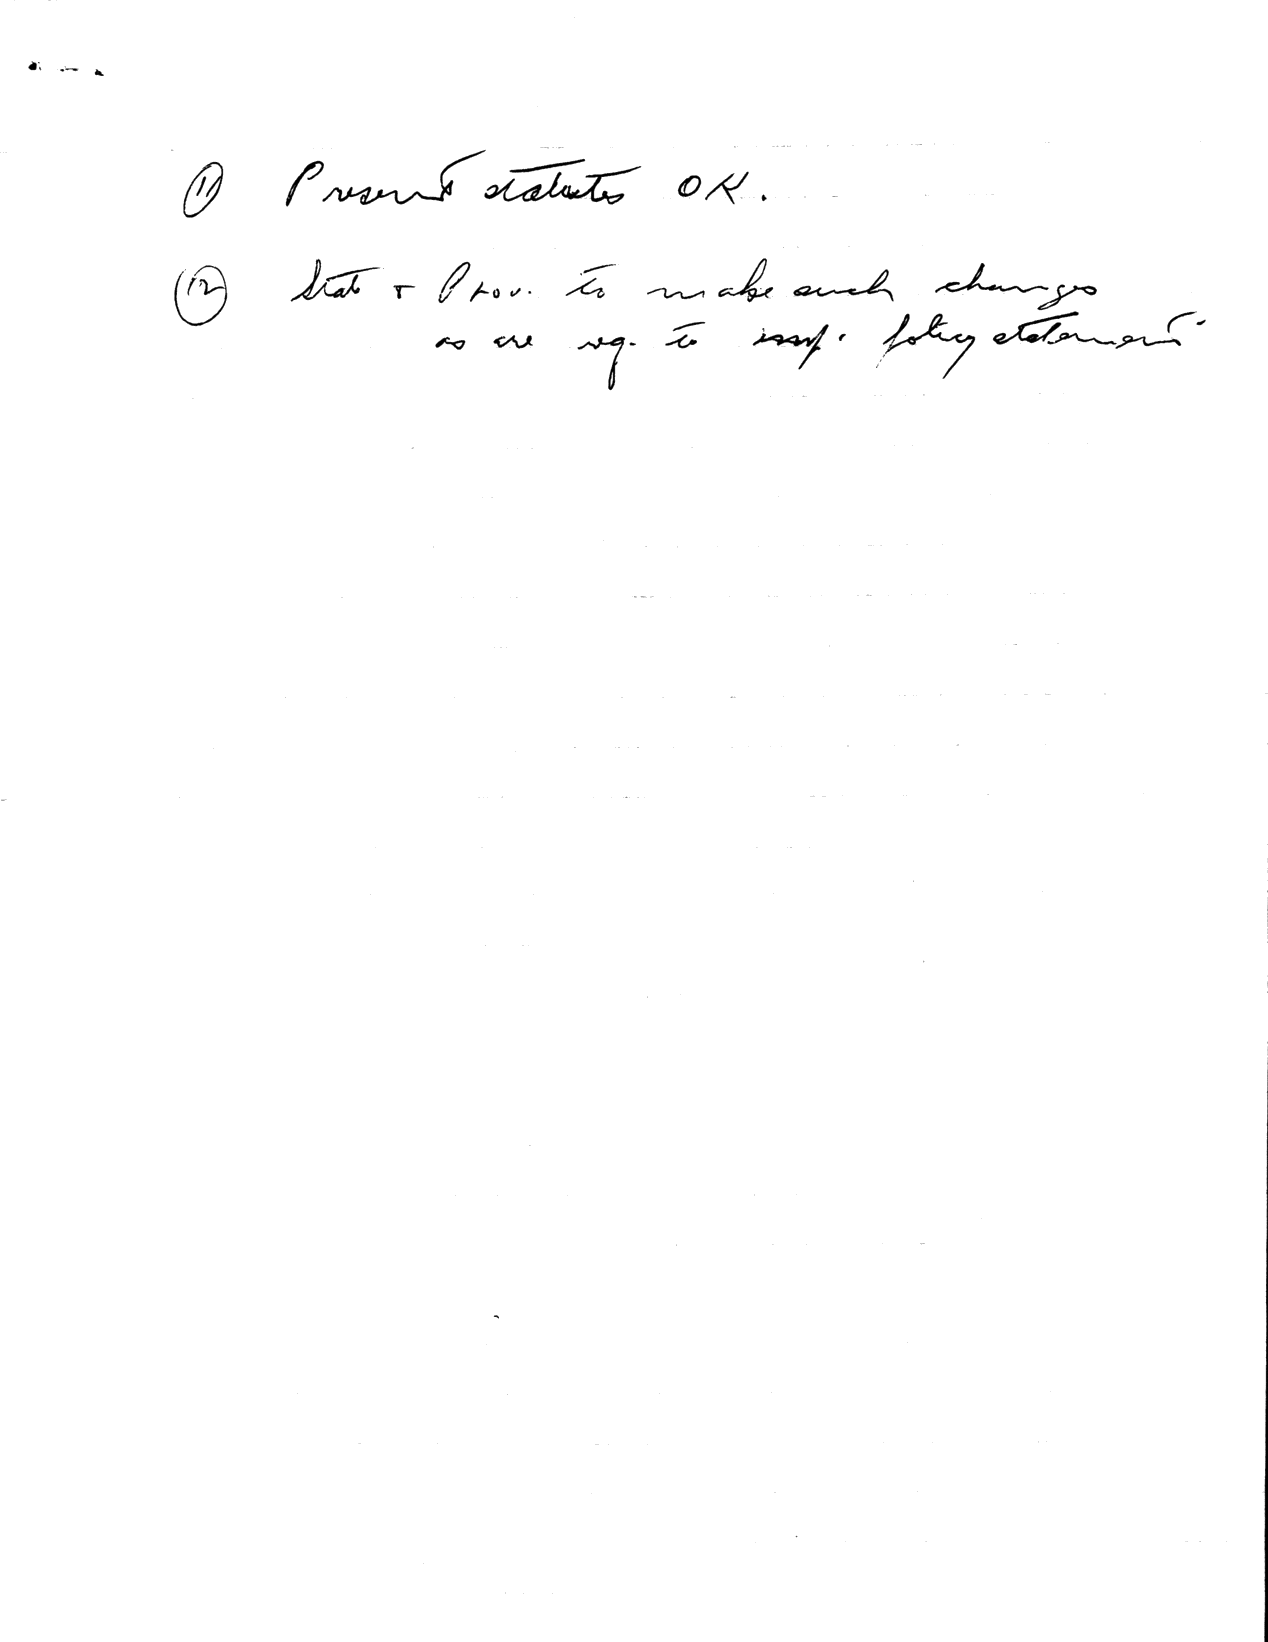 ⑪ Present statutes OK.
⑫ State + Prov. to make such changes
as are req. to policy statement